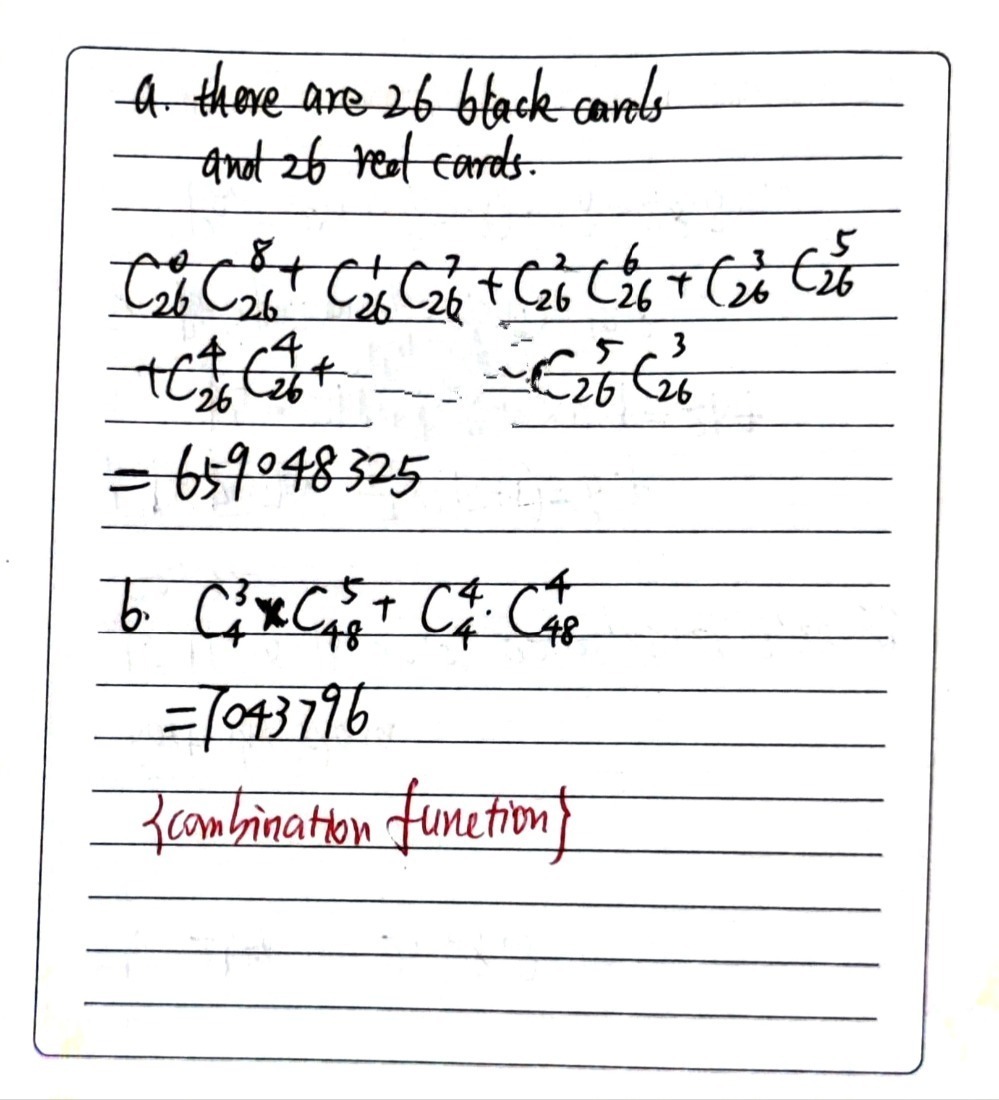 a. there are 26 black cards
and 26 red cards.
C₂₆⁰ C₂₆⁸ + C₂₆¹ C₂₆⁷ + C₂₆² C₂₆⁶ + C₂₆³ C₂₆⁵
+ C₂₆⁴ C₂₆⁴ + C₂₆⁵ C₂₆³
= 659048325
b. C₄³ × C₄₈⁵ + C₄⁴ · C₄₈⁴
= 7043796
{combination function}